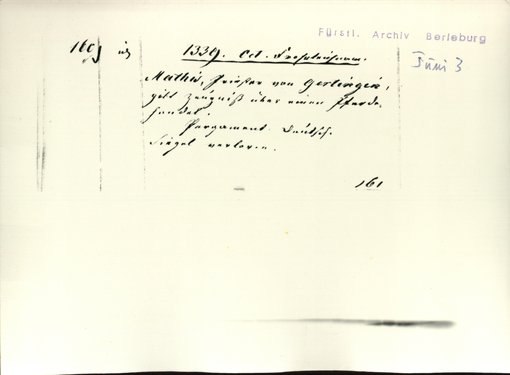 Fürstl. Archiv Berleburg
Juni 3
160
1339. Oct.
Mathis, Priester von Gerlingen,
gibt Zeugniß über einen Pferde-
handel.
Pergament. Deutsch.
Siegel verloren.
161